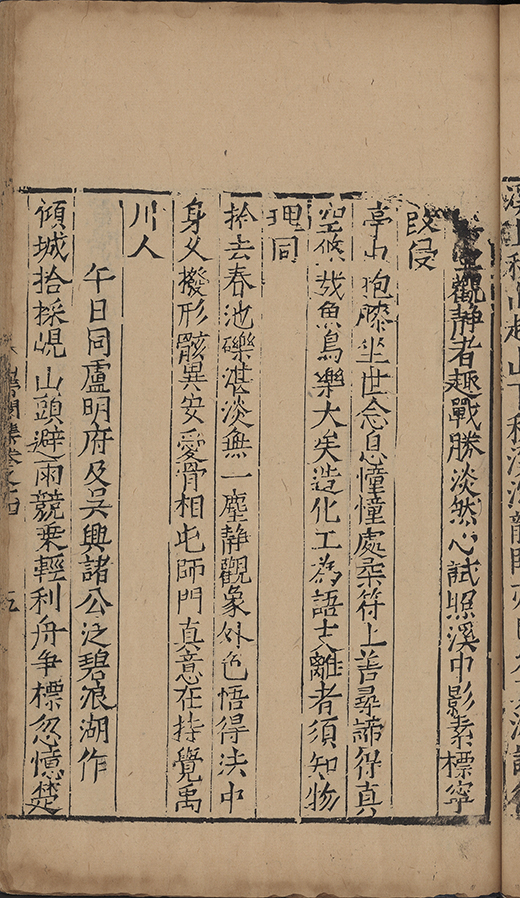 觀靜者趣戰勝淡然心試照溪中影素標寧
改侵
亭山抱膝坐世念息憧憧處染符上善尋諦得真
空悠哉魚鳥樂大矣造化工為語支離者須知物
理同
拎去春池礫湛淡無一塵静觀象外色悟得法中
身父撥形骸異安愛骨相屯師門真意在持覺禹
川人
午日同盧明府及吳興諸公泛碧浪湖作
傾城拾採峴山頭避雨競乘輕利舟爭標忽憶楚
集卷之四
五